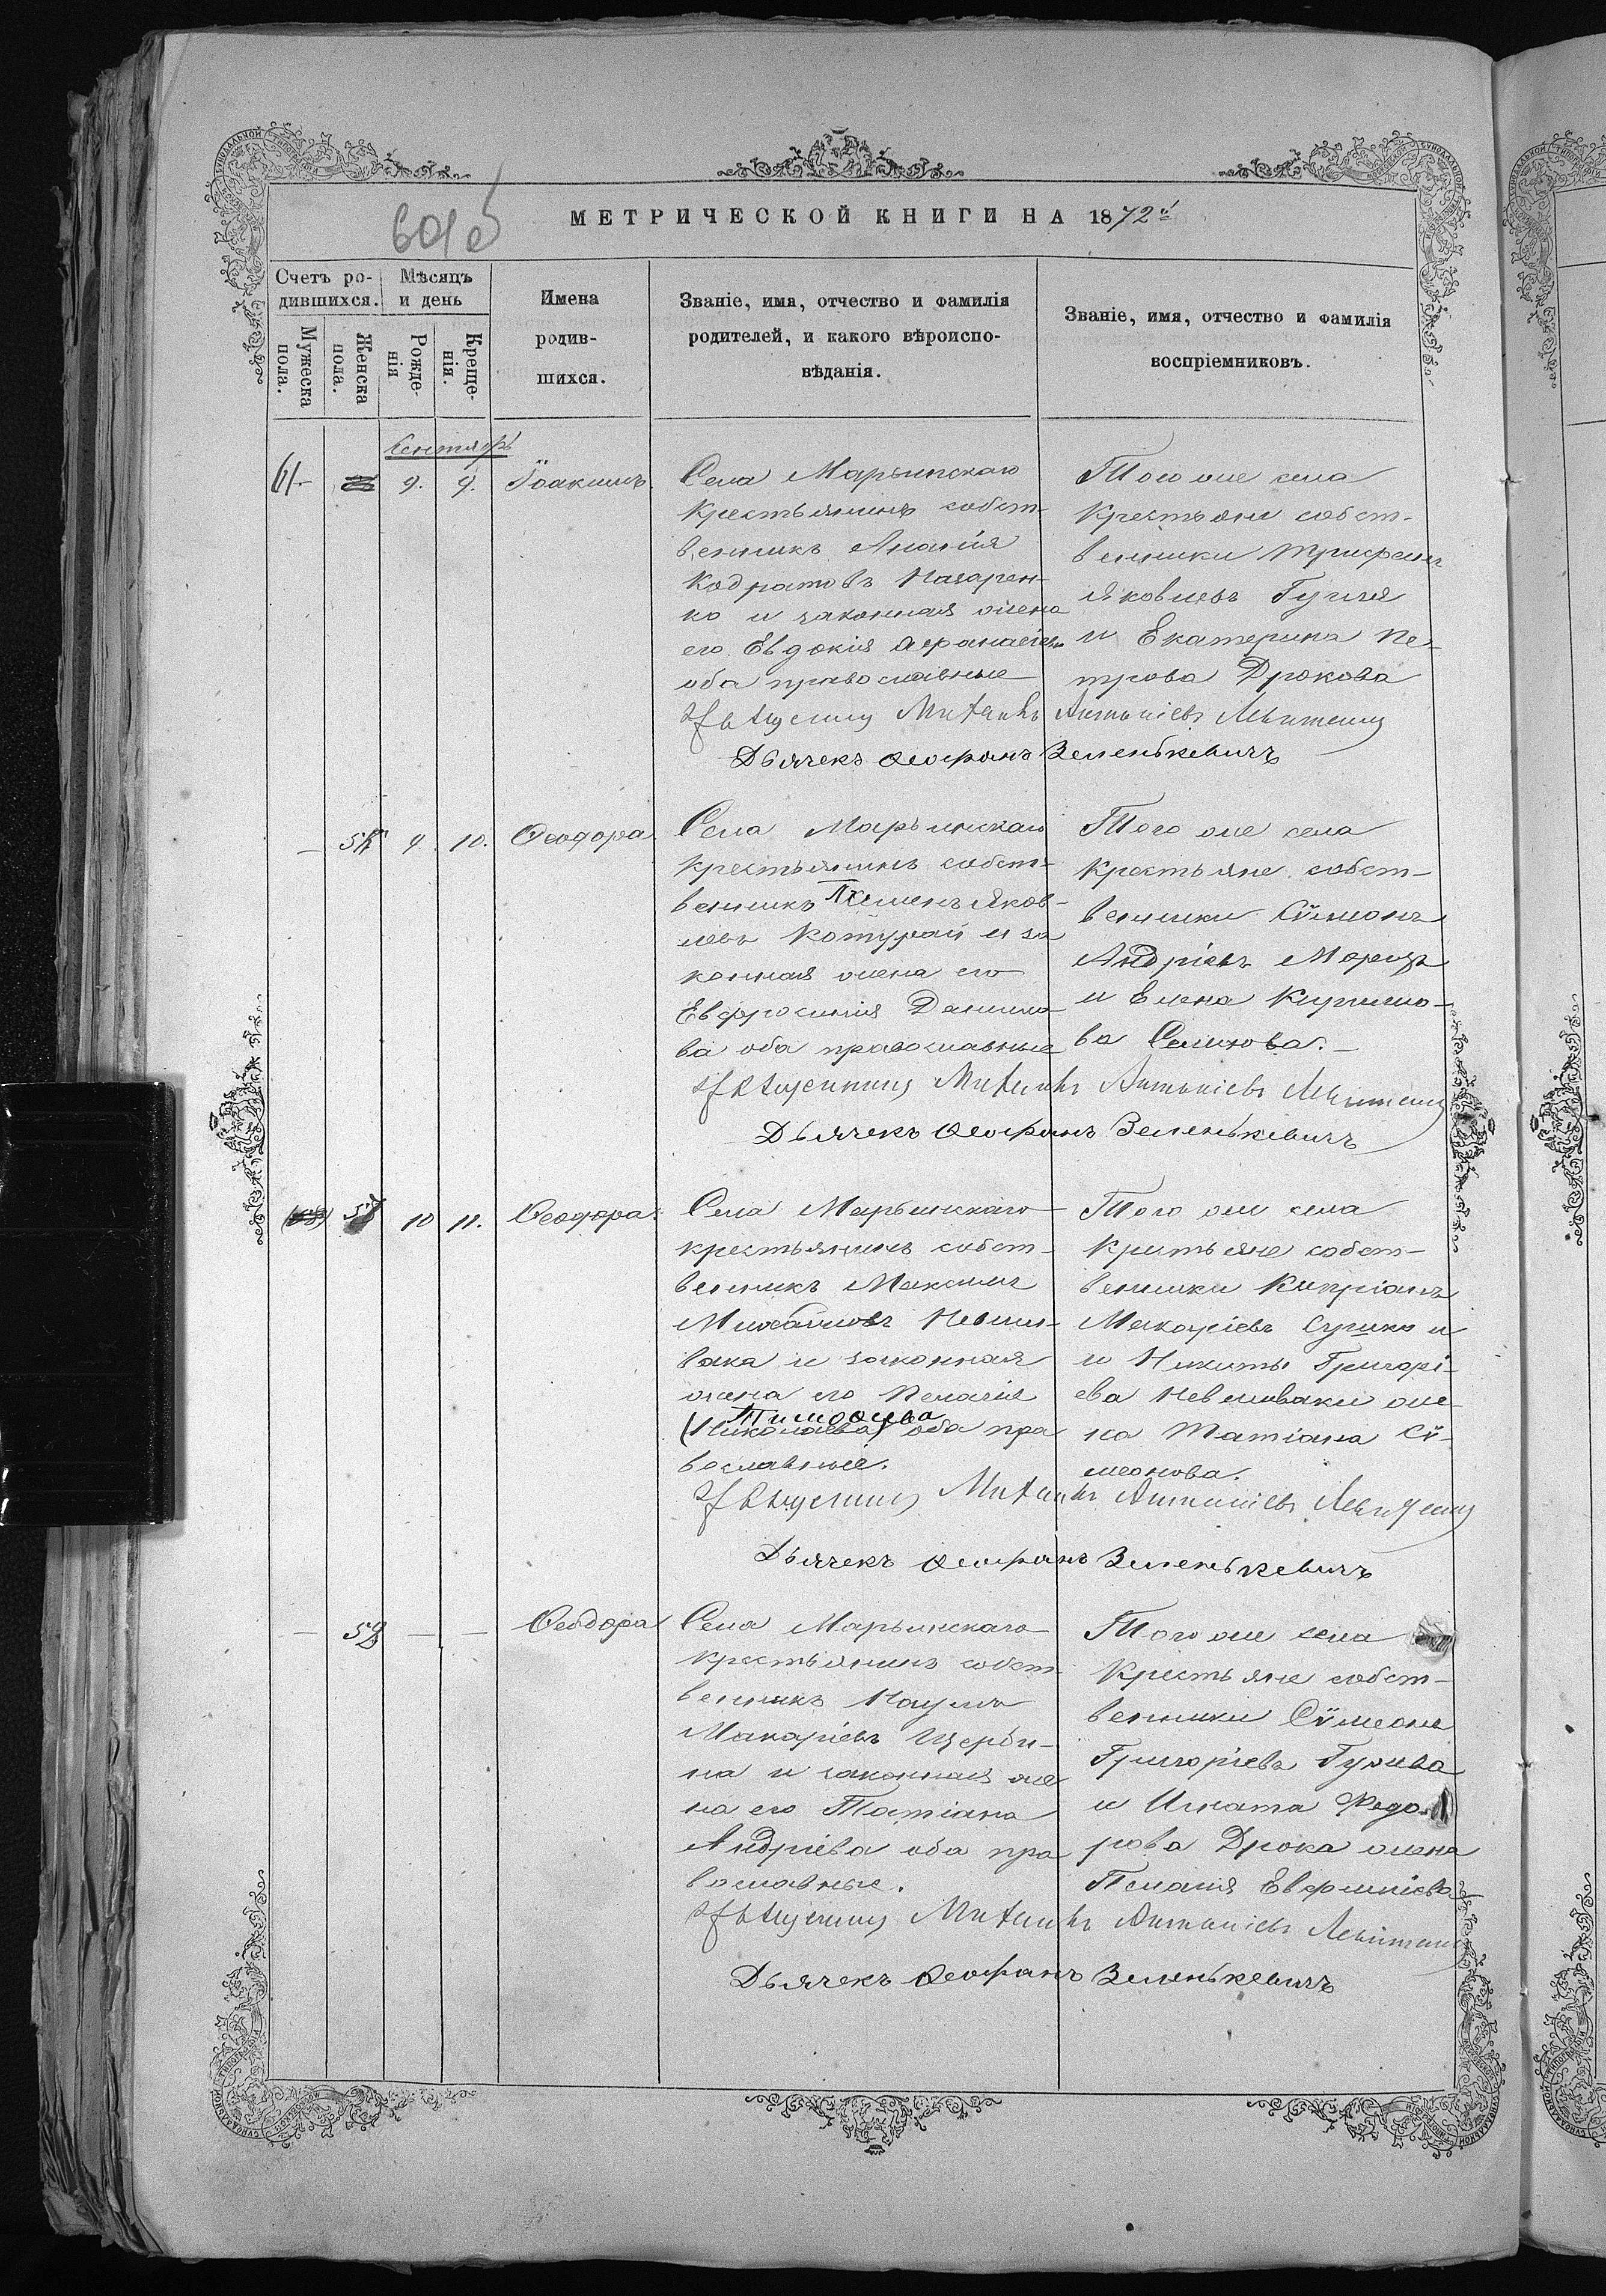 МЕТРИЧЕСКОЙ КНИГИ НА 1872й
Счетъ ро-
дившихся.
Мѣсяцъ
и день
Мужеска
пола.
Женска
пола.
Рожде-
нія
Креще-
нія.
Имена
родив-
шихся.
Званіе, имя, отчество и фамилія
родителей, и какого вѣроиспо-
вѣданія.
Званіе, имя, отчество и фамилія
воспріемниковъ.
Сентябрь
61. 9. 9. Іоакимъ.
Села Марьинскаго
крестьянинъ собст-
венникъ Ананія
Кодратовъ Назарен-
ко и законная жена
его Евдокія Афанасіева
оба православные
Того же села
крестьяне собст-
венники Трифонъ
Яковлевъ Гуля
и Екатерина Пе-
трова Дрокова
Священникъ Михаилъ Антоніевъ
Дьячекъ Ѳеофанъ Зеленькевичъ
— 57 9. 10. Ѳеодора
Села Марьинскаго
крестьянинъ собст-
венникъ Пименъ Яков-
левъ Котурай и за
конная жена его
Евфросинія Данило-
ва оба православные
Того же села
крестьяне собст-
венники Сѷмеонъ
Андріевъ Морозъ
и Елена Кирило-
ва
Священникъ Михаилъ Антоніевъ
Дьячекъ Ѳеофанъ Зеленькевичъ
58 10 11. Ѳеодора.
Села Марьинскаго
крестьянинъ собст-
венникъ Максимъ
Михайловъ Невли-
вака и законная
жена его Пелагія
Тимоѳиева
(Николаева) оба пра
вославные.
Того же села
крестьяне собст-
венники Кипріанъ
Макаріевъ Сушко и
и Никиты Григорі-
ева Невливаки же-
на Татіана Сѷ-
меонова.
Священникъ Михаилъ Антоніевъ
Дьячекъ Ѳеофанъ Зеленькевичъ
— 59 — — Ѳеодора
Села Марьинскаго
крестьянинъ собст-
венникъ Наумъ
Макаріевъ Щерби-
на и законная же
на его Татіана
Андріева оба пра
вославные.
Того же села
крестьяне собст-
венники Сѷмеонъ
Григоріевъ
и Игната Федо-
рова Дрока жена
Пелагія Евфиміева
Священникъ Михаилъ Антоніевъ
Дьячекъ Ѳеофанъ Зеленькевичъ